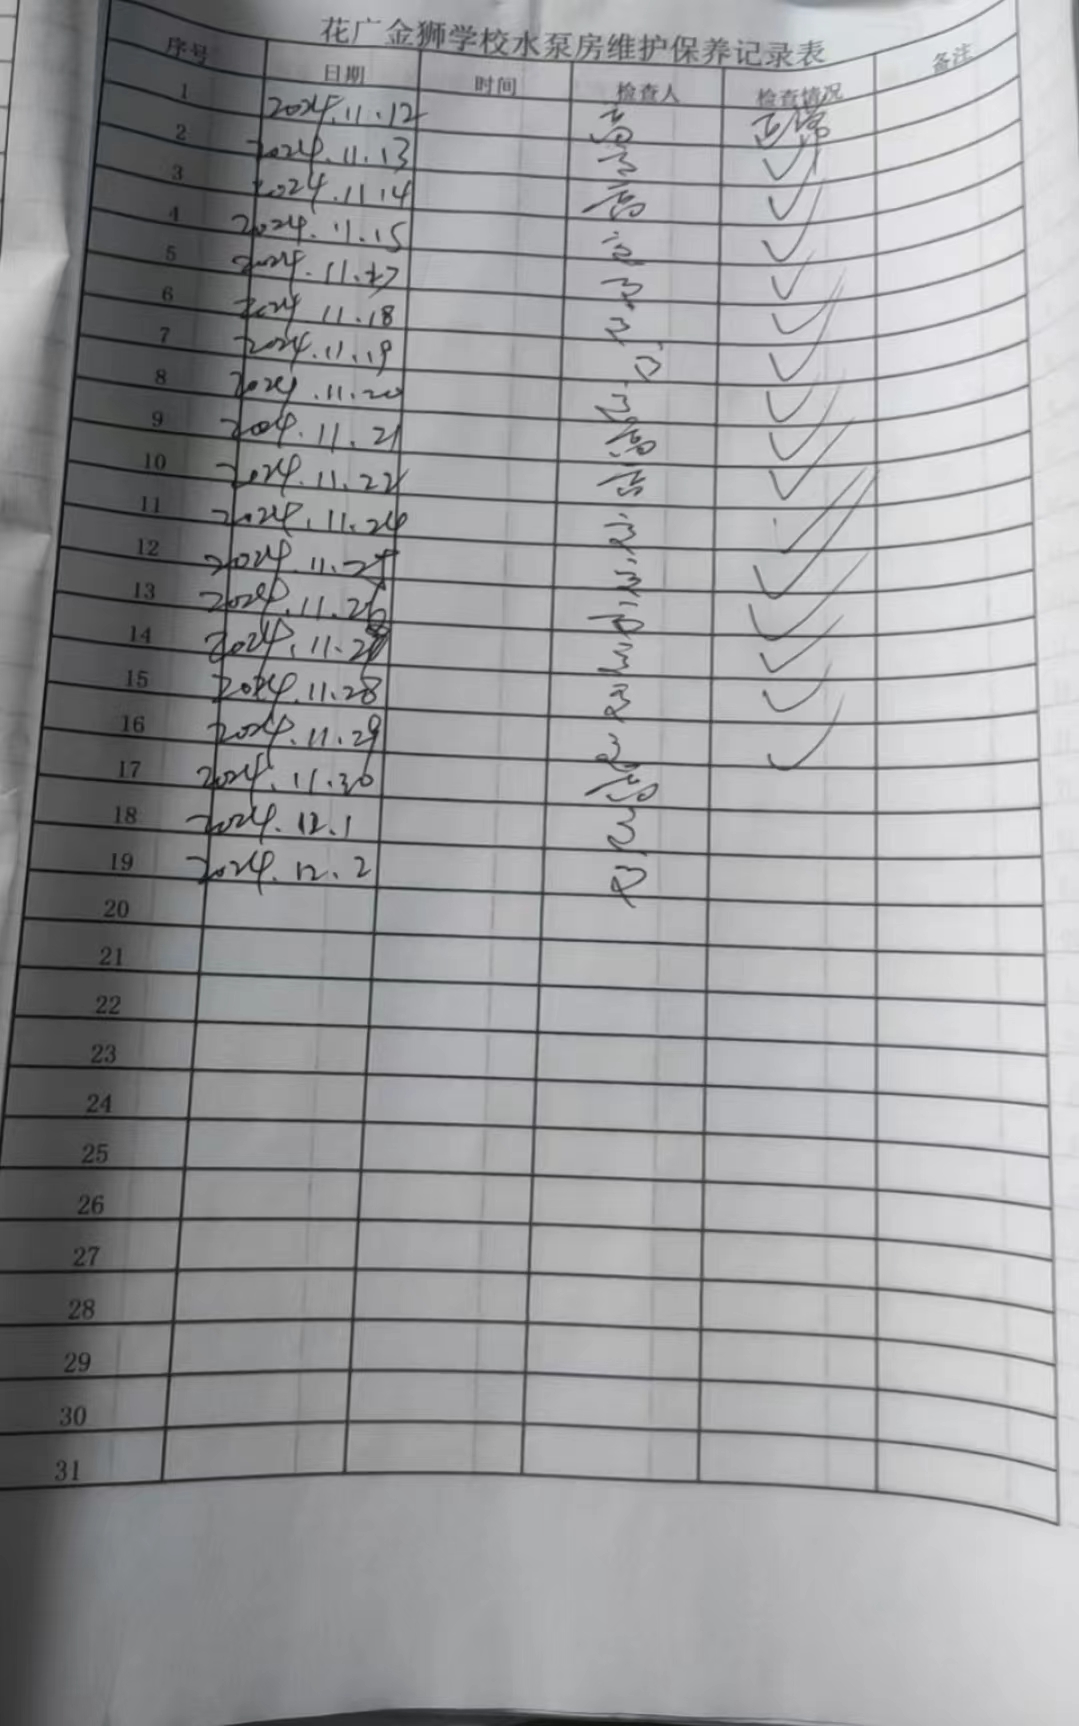 花广金狮学校水泵房维护保养记录表
序号 日期 时间 检查人 检查情况 备注
1 2024.11.12 高 正常
2 2024.11.13 高 ✓
3 2024.11.14 高 ✓
4 2024.11.15 ✓
5 2024.11.17 ✓
6 2024.11.18 ✓
7 2024.11.19 ✓
8 2024.11.20 ✓
9 2024.11.21 高 ✓
10 2024.11.22 高 ✓
11 2024.11.24 ✓
12 2024.11.25 ✓
13 2024.11.26 高 ✓
14 2024.11. ✓
15 2024.11.28 ✓
16 2024.11.29 ✓
17 2024.11.30 高
18 2024.12.1
19 2024.12.2
20
21
22
23
24
25
26
27
28
29
30
31